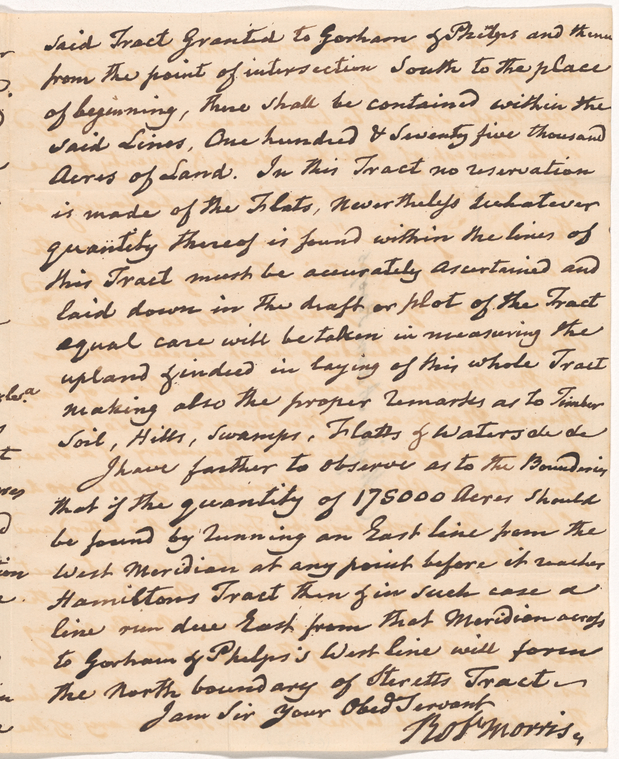 said Tract Granted to Gorham & Phelps and thence
from the point of intersection South to the place
of beginning, there shall be contained within the
said Lines, One hundred & Seventy five thousand
Acres of Land. In this Tract no reservation
is made of the Flats, nevertheless whatever
quantity thereof is found within the lines of
this Tract must be accurately ascertained and
laid down in the draft or plot of the Tract
equal care will be taken in measuring the
upland & indeed in laying of this whole Tract
making also the proper remarks as to Timber
Soil, Hills, Swamps, Flatts & Waters &c &c
I have farther to observe as to the Bounderies
that if the quantity of 175000 Acres should
be found by running an East line from the
West Meridian at any point before it reaches
Hamiltons Tract then & in such case a
line run due East from that Meridian across
to Gorham & Phelps's West line will form
the North boundary of Steretts Tract
I am Sir Your Obed Servant
Robt Morris